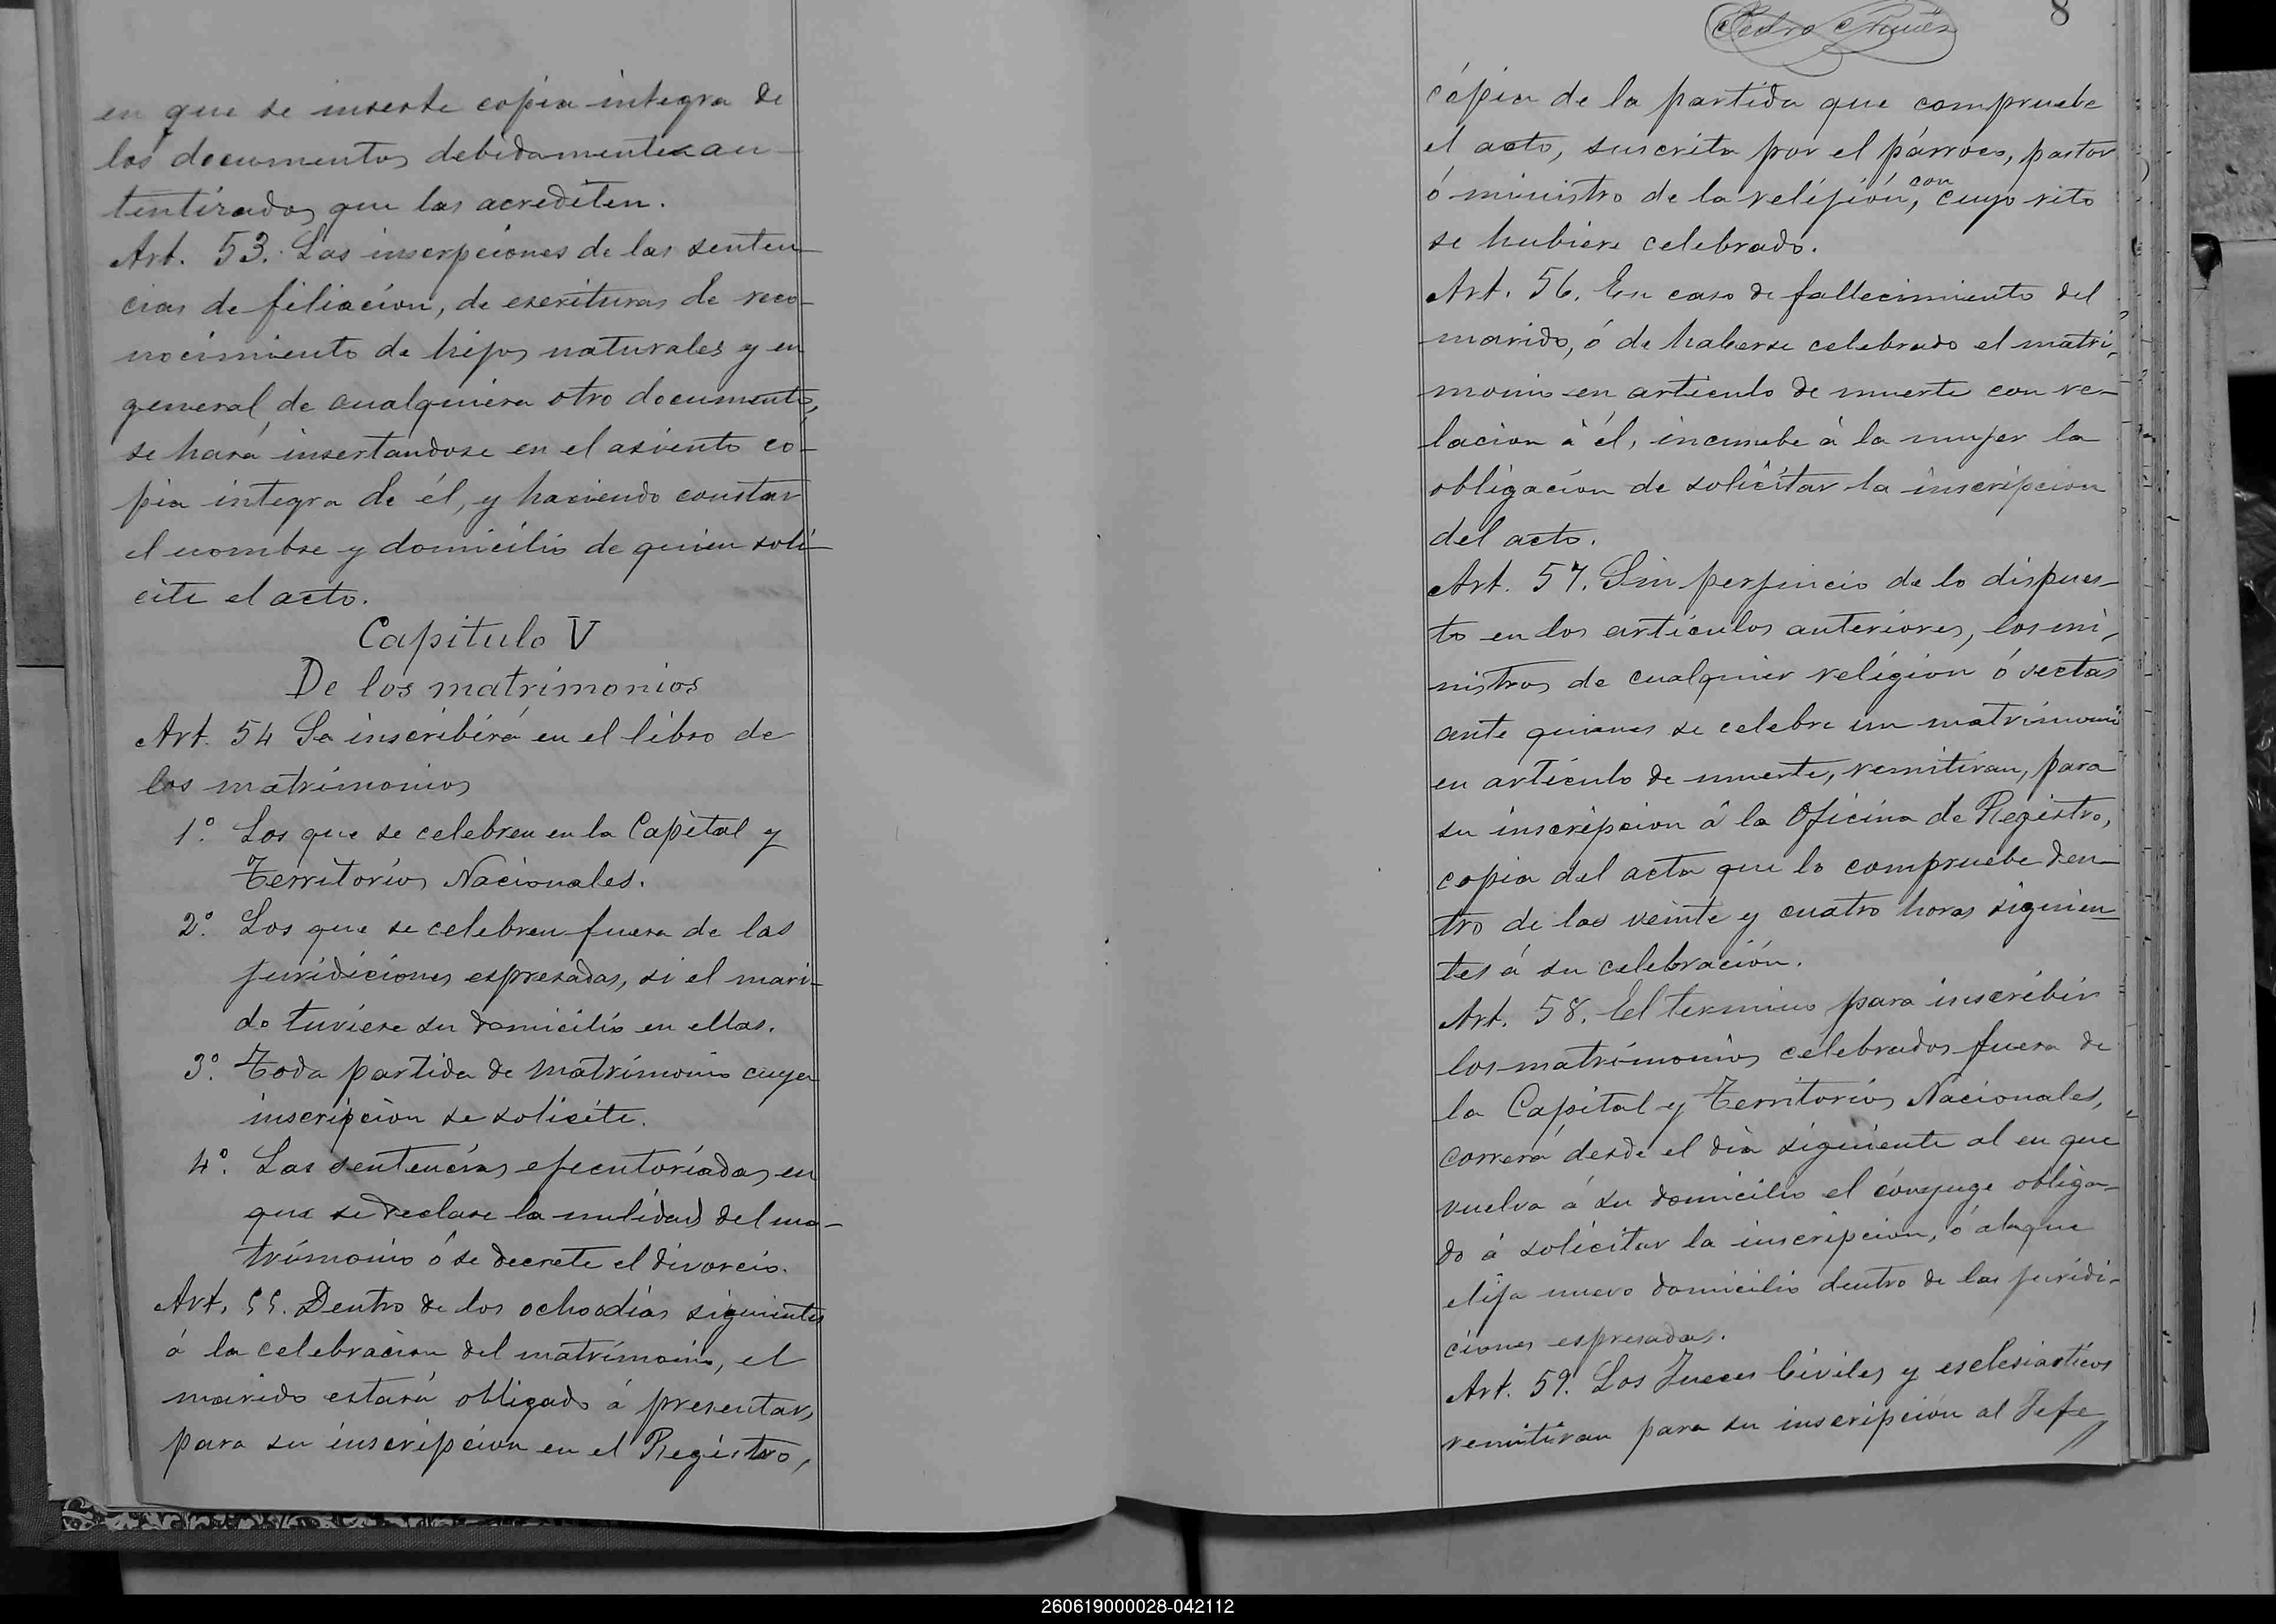 en que se inserte copia integra de
los documentos debidamente au-
tentizados que las acrediten.
Art. 53. Las inscrpciones de las senten-
cias de filiacion, de escrituras de reco-
nocimiento de hijos naturales y en
general, de cualquiera otro documento,
se hará insertandose en el asiento co-
pia integra de él, y haciendo constar
el nombre y domicilio de quien soli-
cite el acto.
Capitulo V
De los matrimonios
Art. 54 Se inscribirá en el libro de
los matrimonios
1º. Los que se celebren en la Capital y
Territorios Nacionales.
2º. Los que se celebren fuera de las
juridiciones espresadas, si el mari-
do tuviese su domicilio en ellas.
3º. Toda partida de matrimonio cuya
inscripcion se solicite.
4º. Las sentencias ejecutoriadas en
que se declare la nulidad del ma-
trimonio ó se decrete el divorcio.
Art. 55. Dentro de los ocho dias siguientes
á la celebracion del matrimonio, el
marido estará obligado á presentar,
para su inscripcion en el Registro,
8
Pedro Nuñez
cópia de la partida que compruebe
el acto, suscrita por el párroco, pastor
ó ministro de la relijión, con cuyo rito
se hubiere celebrado.
Art. 56. En caso de fallecimiento del
marido, ó de haberse celebrado el matri-
monio en articulo de muerte con re-
lacion á él, incumbe á la mujer la
obligacion de solicitar la inscripcion
del acto.
Art. 57. Sin perjuicio de lo dispues-
to en los articulos anteriores, los mi-
nistros de cualquier religion ó sectas
ante quienes se celebre un matrimonio
en articulo de muerte, remitiran, para
su inscripcion á la Oficina de Registro,
copia del acta que lo compruebe den-
tro de las veinte y cuatro horas siguien-
tes á su celebración.
Art. 58. El termino para inscribir
los matrimonios celebrados fuera de
la Capital y Territorios Nacionales,
correrá desde el dia siguiente al en que
vuelva á su domicilio el cónyuge obliga-
do á solicitar la inscripcion, ó al que
elija nuevo domicilio dentro de las juridi-
ciones espresadas.
Art. 59. Los Jueces Civiles y esclesiasticos
remitiran para su inscripción al Jefe
260619000028-042112